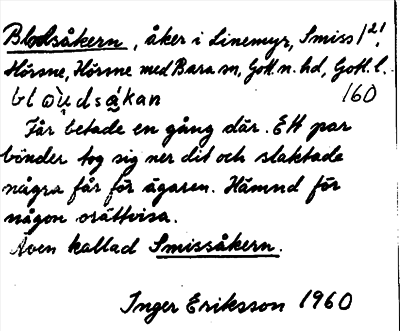 Blodsåkern, åker i Linemyr, Smiss 1²¹,
Hörsne, Hörsne med Bara sn, Gotl. n. hd, Gotl. l.
blo̯u̇dsǻkan 160
Får betade en gång där. Ett par
bönder tog sig ner dit och slaktade
några får för ägaren. Hämnd för
någon orättvisa.
Även kallad Smissåkern.
Inger Eriksson 1960